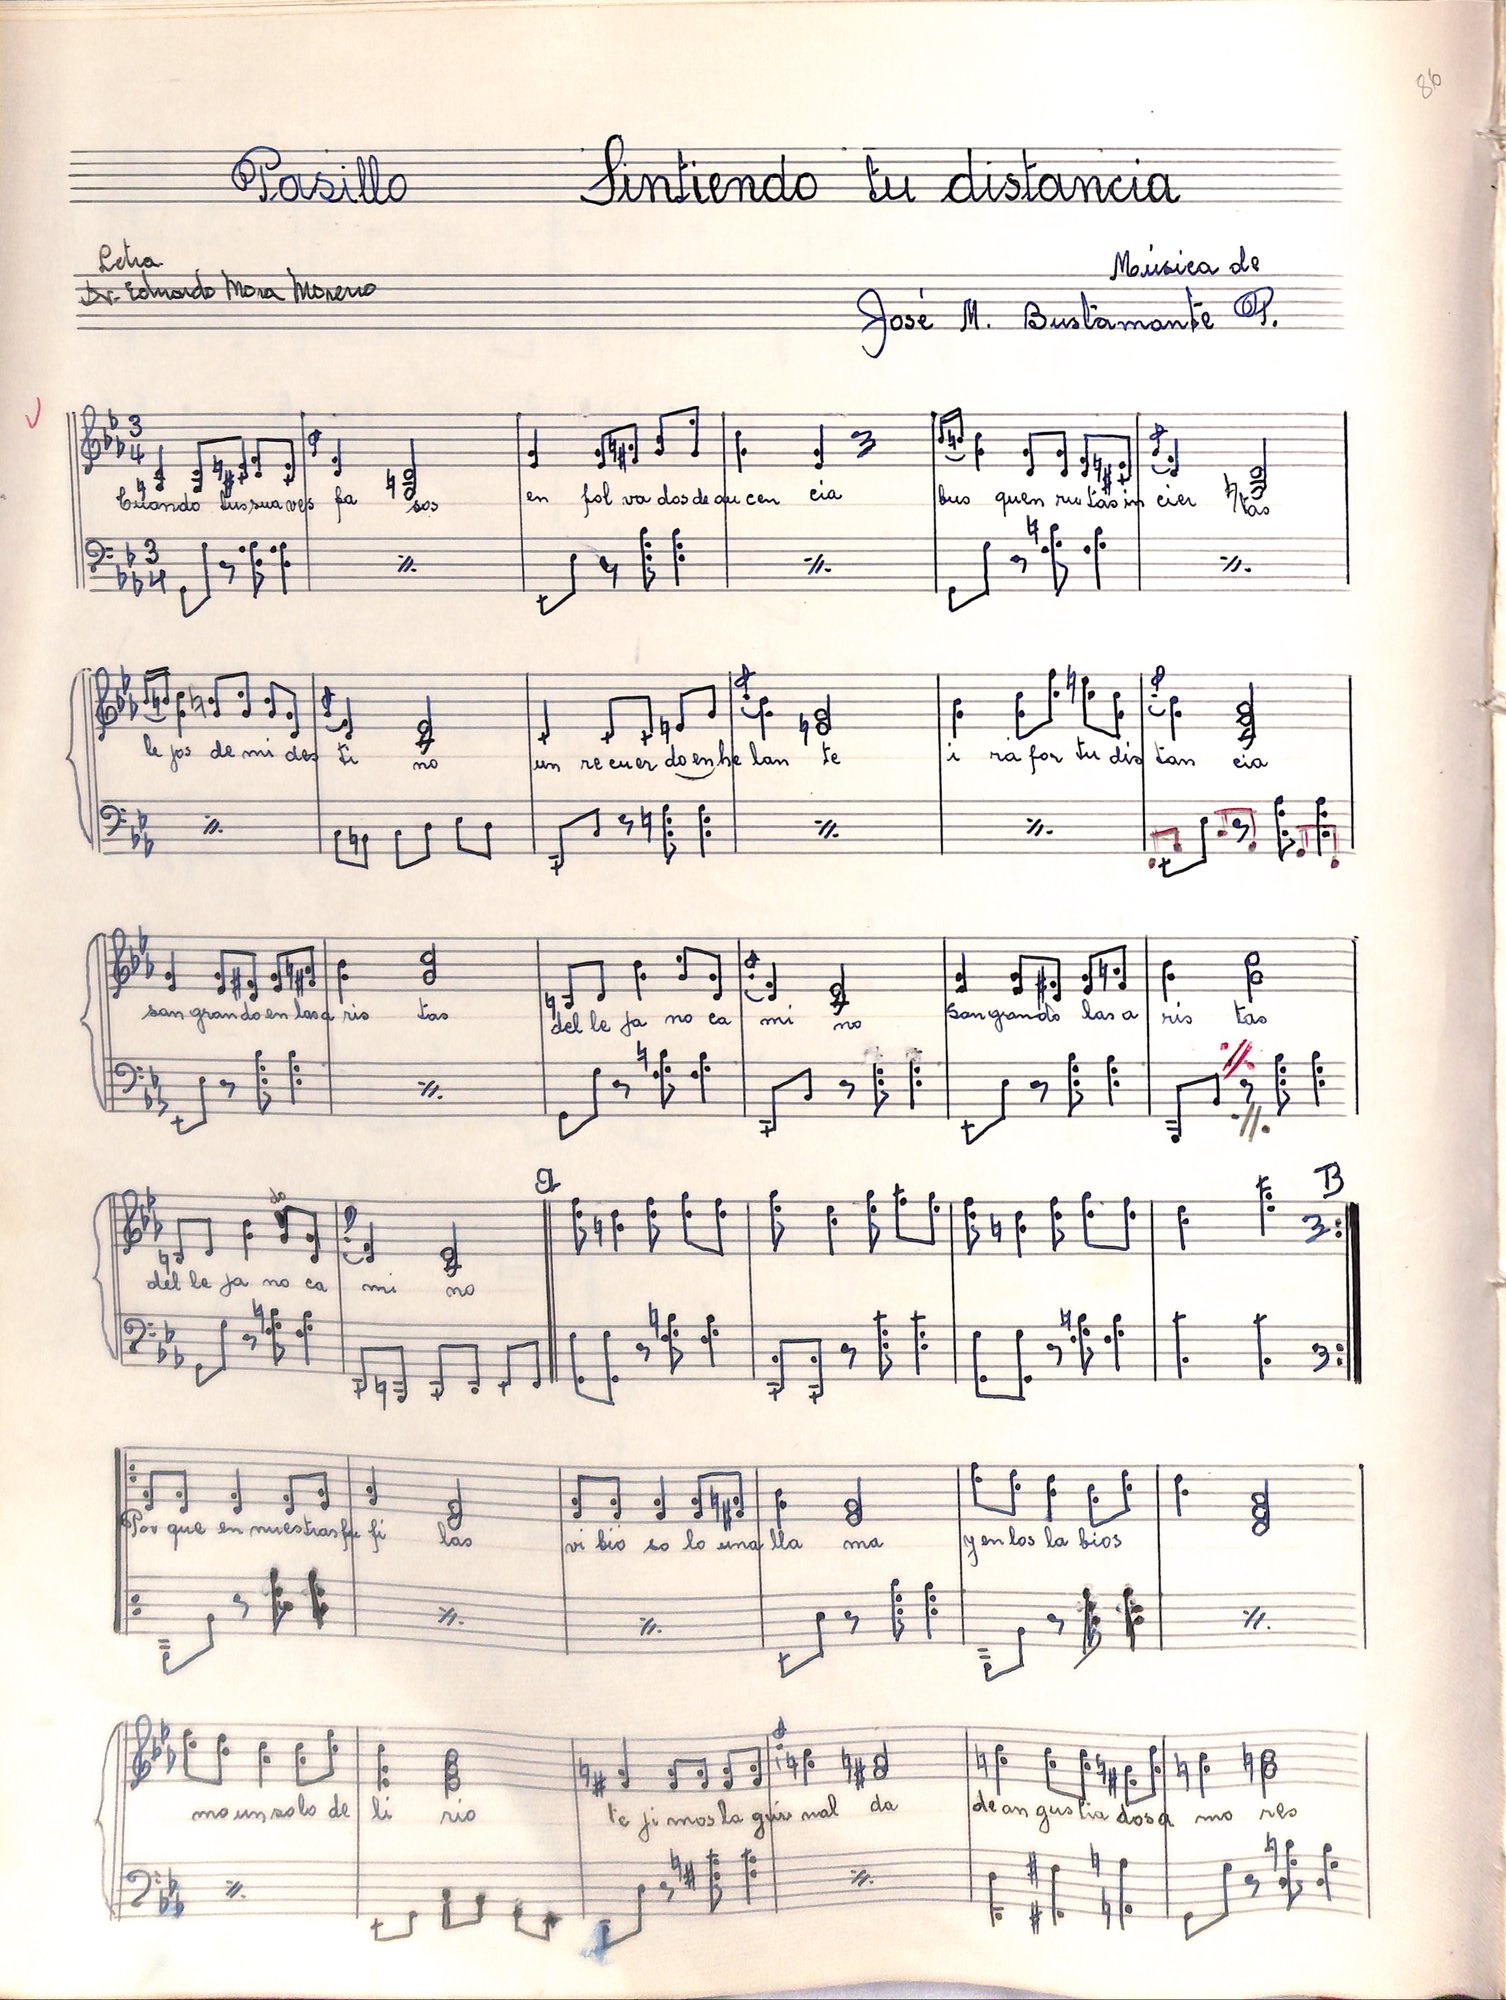 86
Pasillo Sintiendo tu distancia
Letra
Dr. Eduardo Mora Moreno
Música de
José M. Bustamante P.
3 3
4 4
Cuando tus sua ves pa sos en pol va dos de au cen cia bus quen ru tas in cier tas
le jos de mi des ti no un re cuer do en he lan te i rá por tu dis tan cia
san gran do en las a ris tas del le ja no ca mi no San gran do las a ris tas
A B
del le ja no ca mi no
Por que en nuestras pu pi las vi bió so lo una lla ma y en los la bios
mo un solo de li rio te ji mos la guir nal da de an gus tia dos a mo res